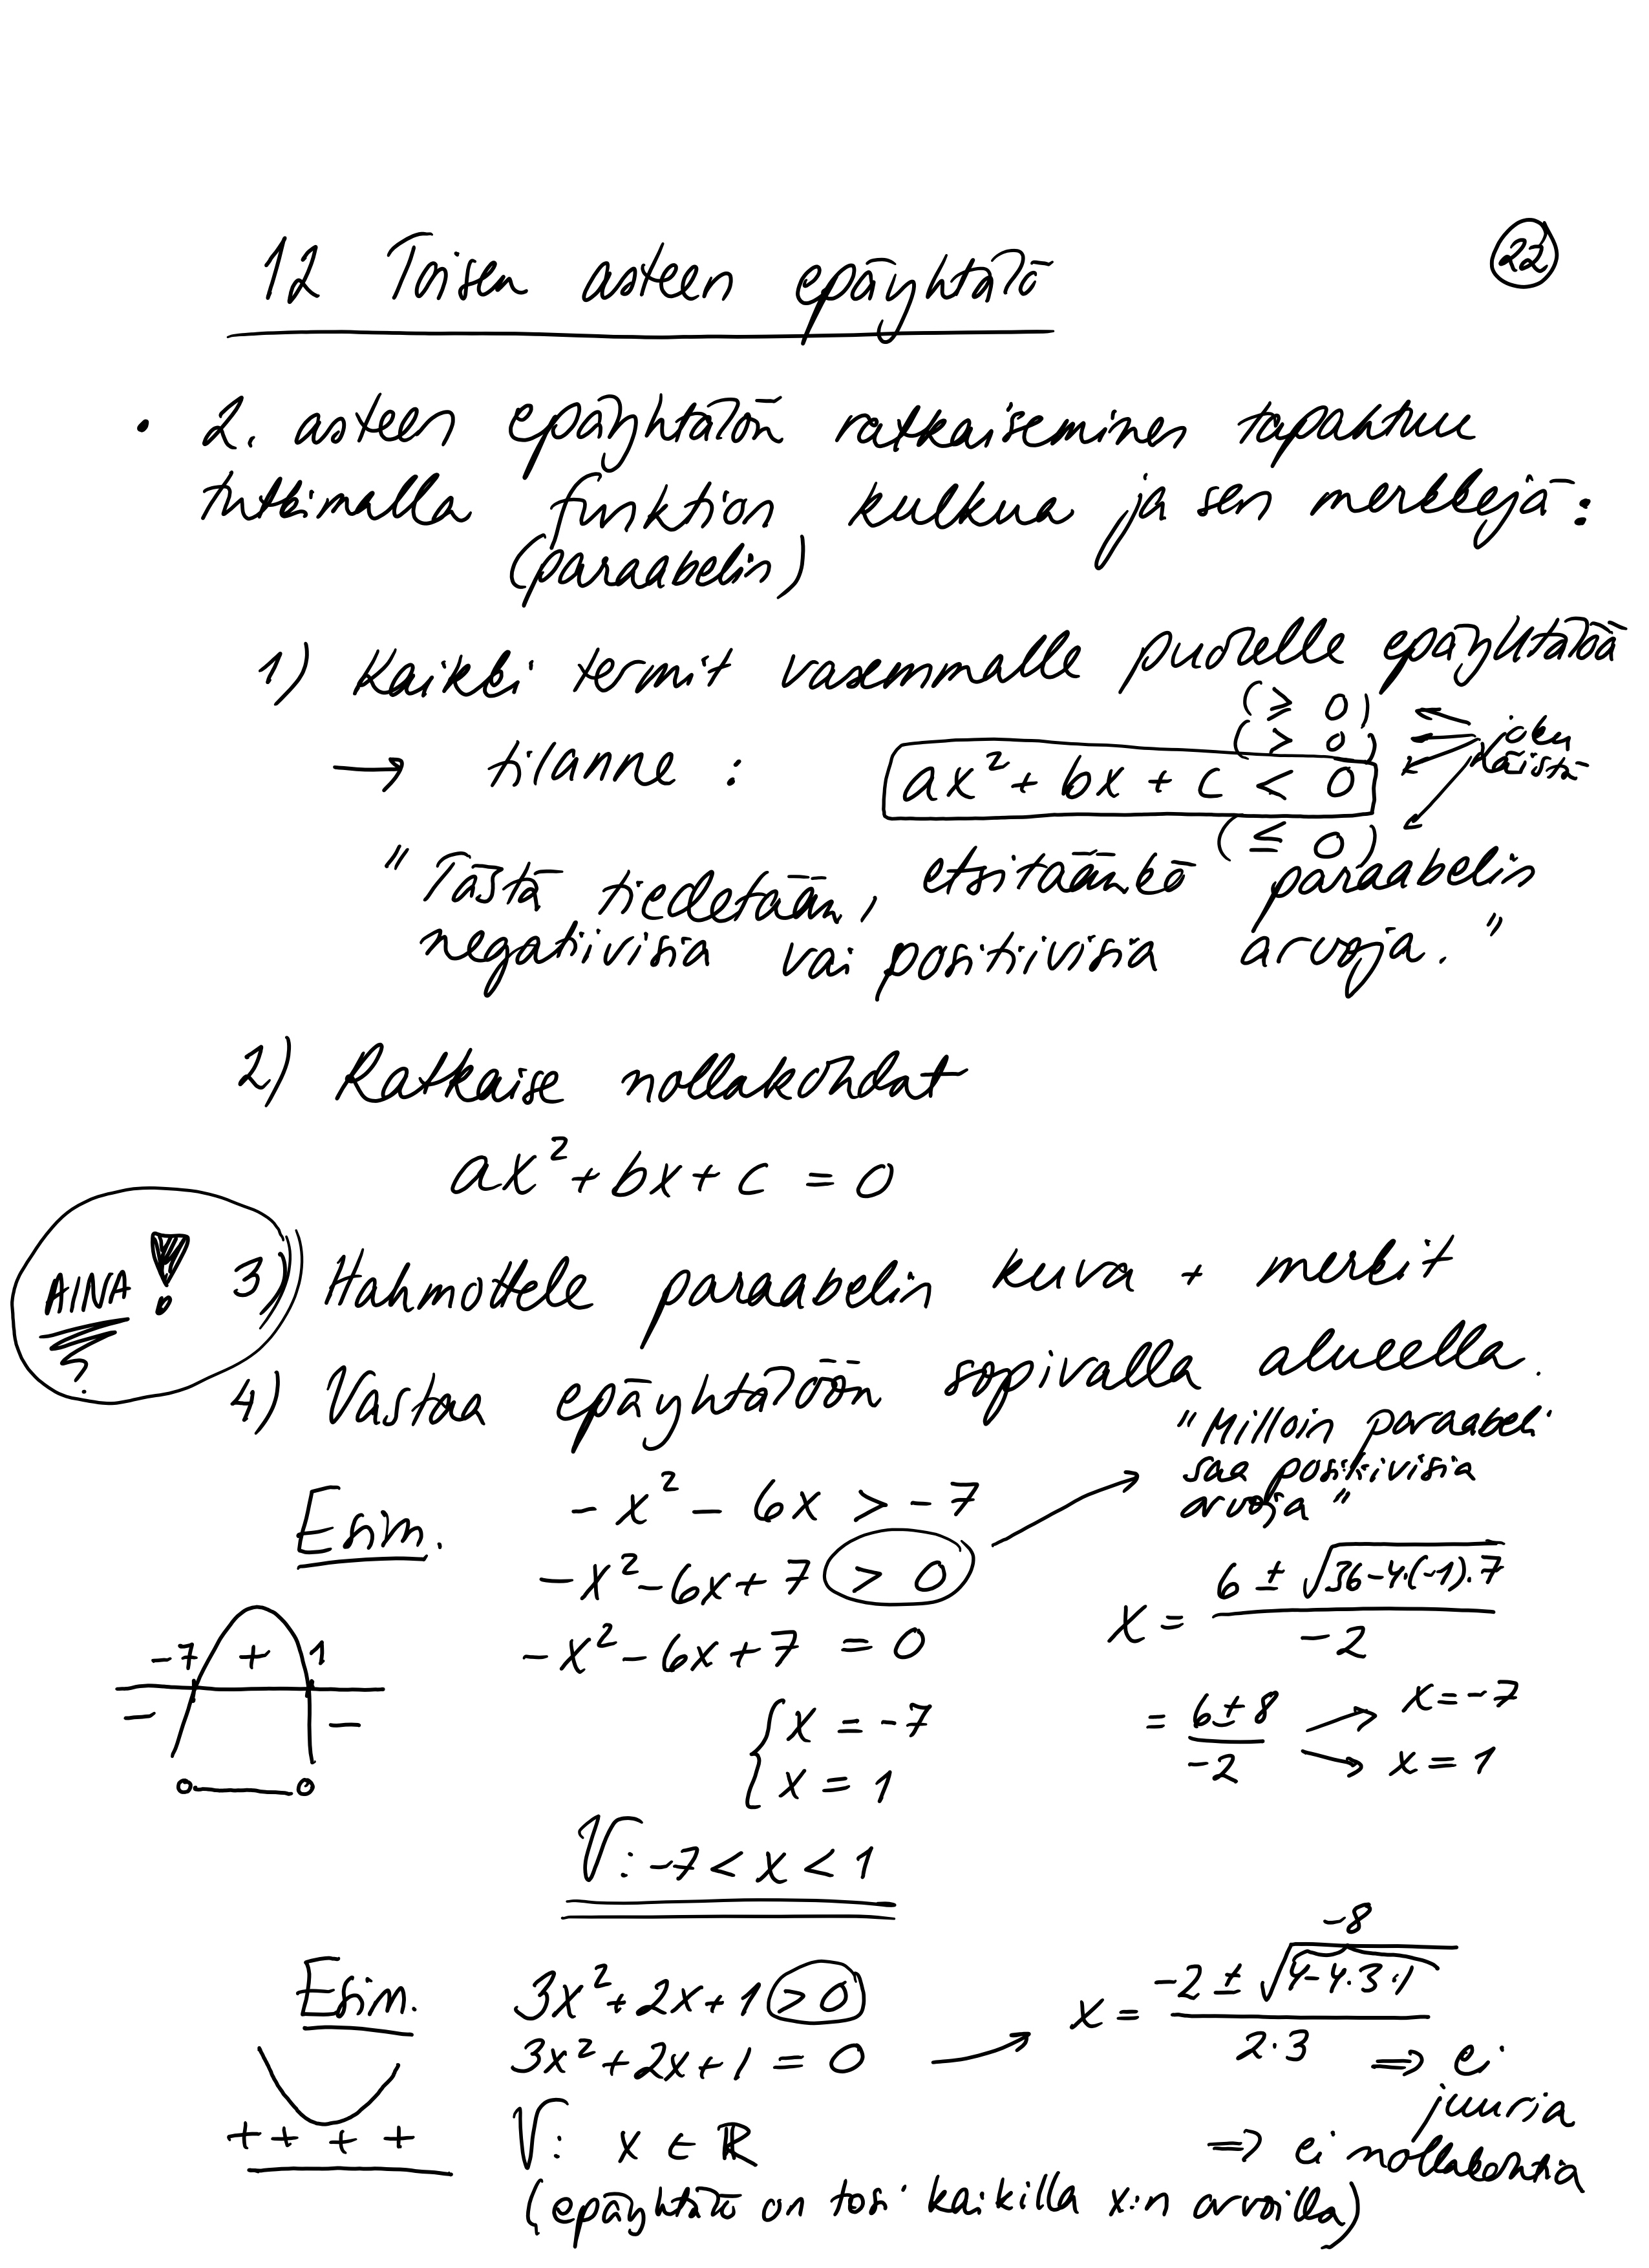 12 Toisen asteen epäyhtälö
22
• 2. asteen epäyhtälön ratkaiseminen tapahtuu
tutkimalla funktion kulkua ja sen merkkejä:
(paraabelin)
1) Kaikki termit vasemmalle puolelle epäyhtälöä
(≥ 0)
(> 0)
→ tilanne : ax² + bx + c < 0
(≤ 0)
joku
näistä
"Tästä tiedetään, etsitäänkö paraabelin
negatiivisia vai positiivisia arvoja."
2) Ratkaise nollakohdat
ax² + bx + c = 0
AINA !
3) Hahmottele paraabelin kuva + merkit
4) Vastaa epäyhtälöön sopivalla alueella.
"Milloin paraabeli
saa positiivisia
arvoja"
Esim. -x² - 6x > -7
-x² - 6x + 7 > 0
-x² - 6x + 7 = 0
x = (6 ± √(36-4·(-1)·7)) / -2
= (6 ± 8) / -2 → x = -7
→ x = 1
-7 + 1
- -
{ x = -7
x = 1
V: -7 < x < 1
Esim. 3x² + 2x + 1 > 0
3x² + 2x + 1 = 0 →
-8
x = (-2 ± √(4-4·3·1)) / 2·3
⇒ ei
juuria
⇒ ei nollakohtia
+ + + +
V: x ∈ ℝ
(epäyhtälö on tosi kaikilla x:n arvoilla)